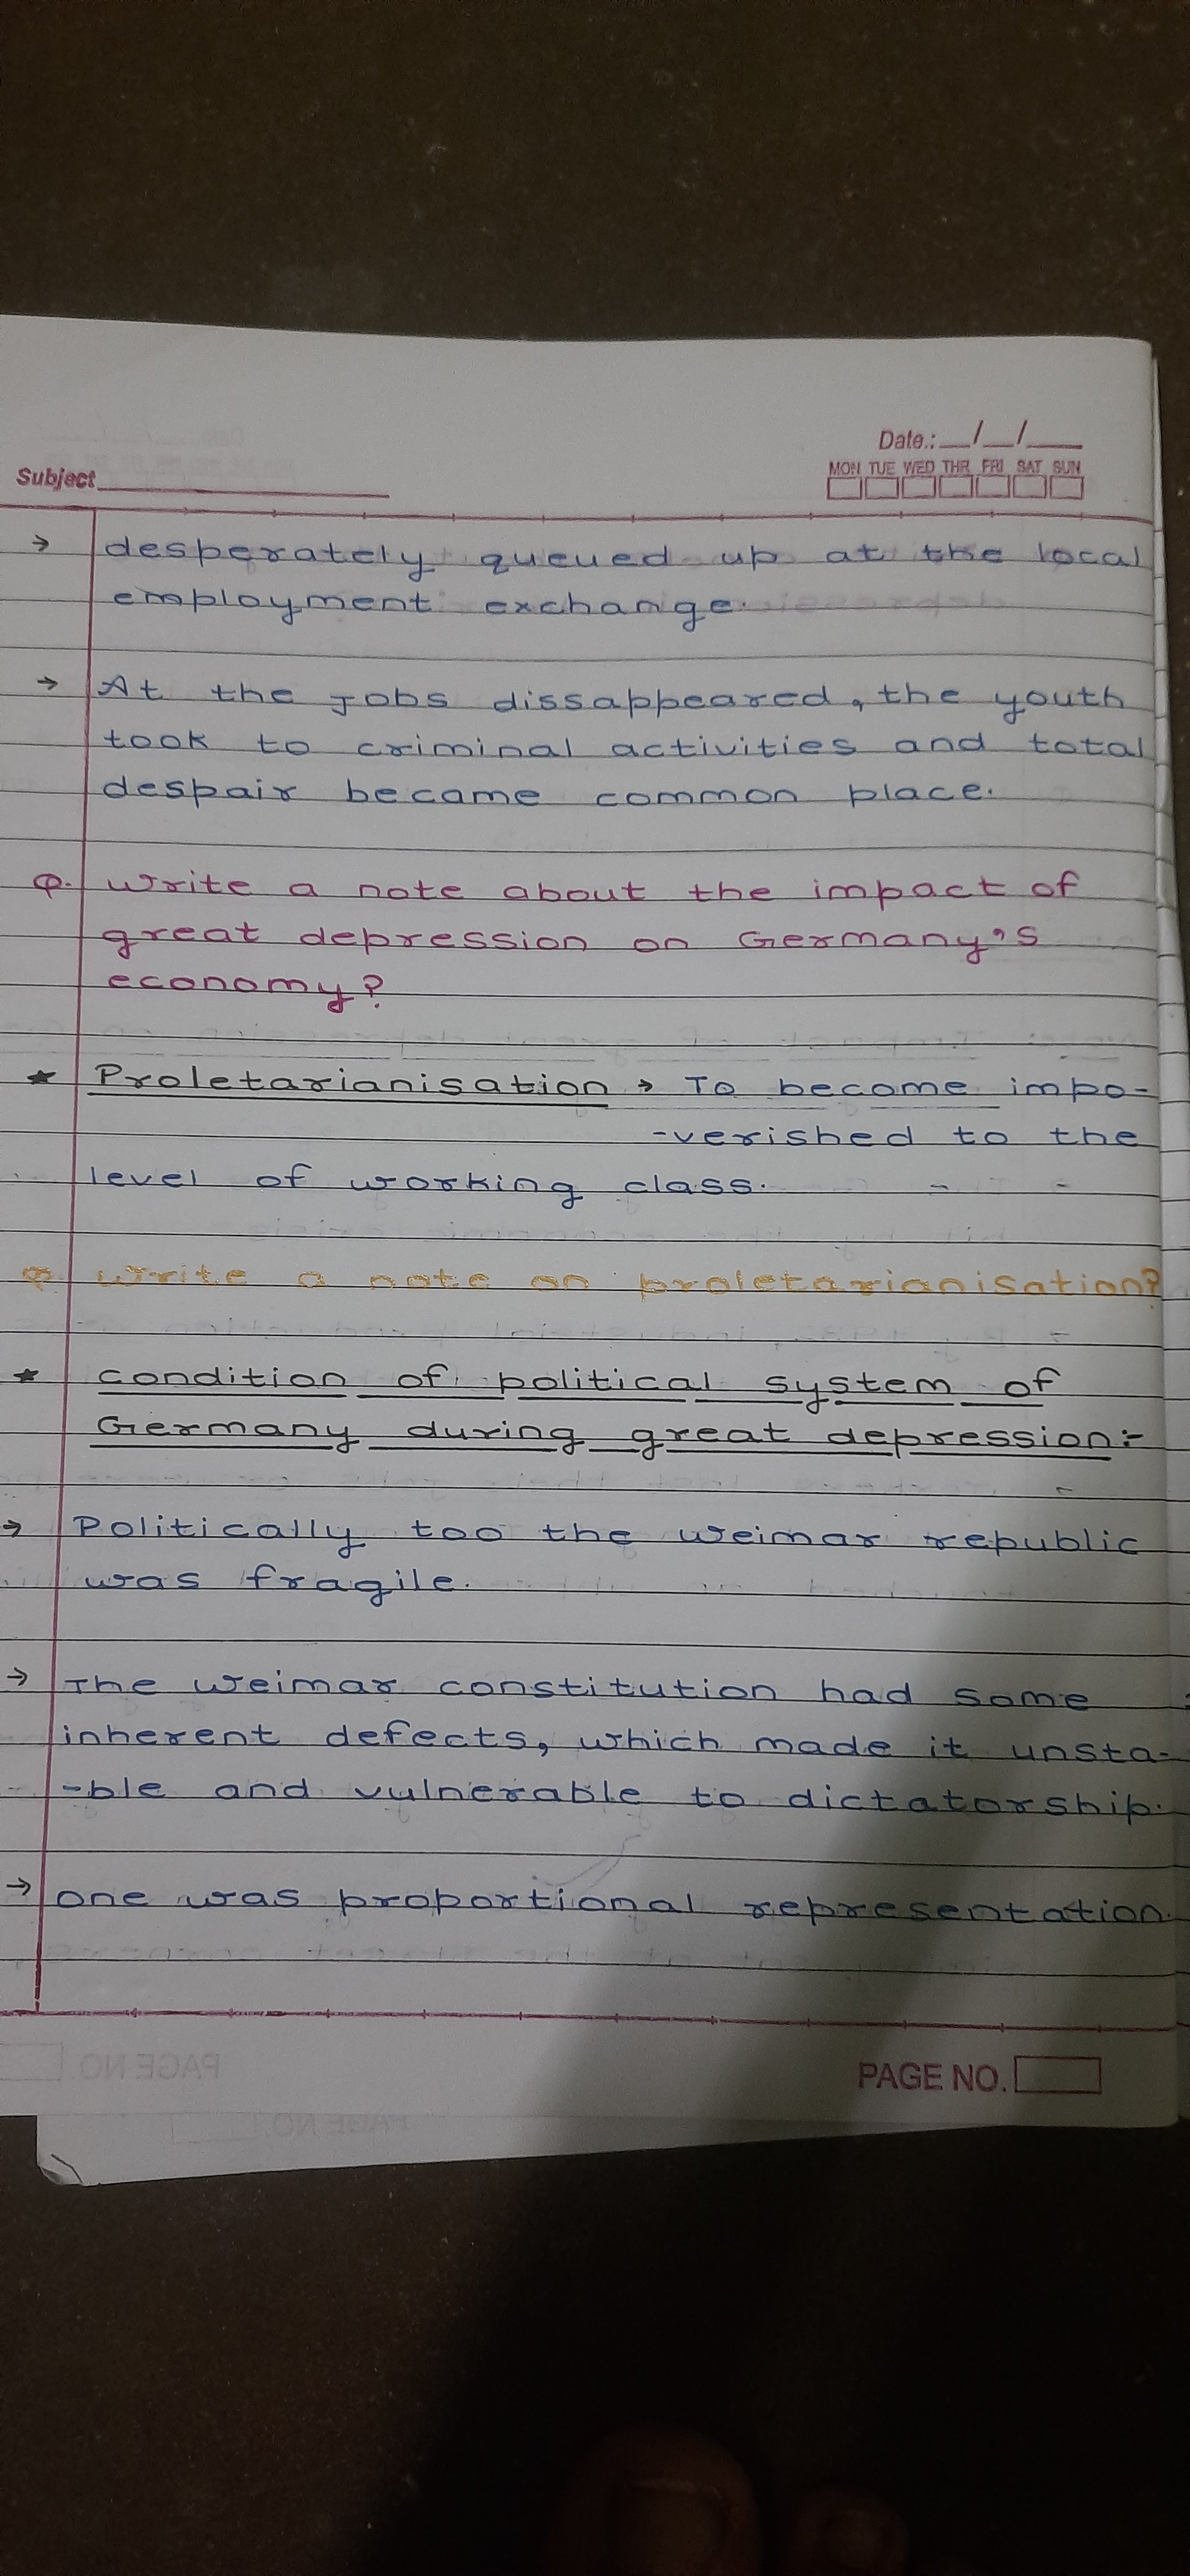 Date.: __/__/___
MON TUE WED THR FRI SAT SUN
Subject
→ desperately queued up at the local
employment exchange.
→ At the Jobs dissappeared, the youth
took to criminal activities and total
despair became common place.
Q. Write a note about the impact of
great depression on Germany's
economy?
★ Proletarianisation → To become impo-
-verished to the
level of working class.
Q. Write a note on proletarianisation?
★ Condition of political system of
Germany during great depression:-
→ Politically too the weimar republic
was fragile.
→ The weimar constitution had some
inherent defects, which made it unsta-
-ble and vulnerable to dictatorship.
→ One was proportional representation.
PAGE NO.